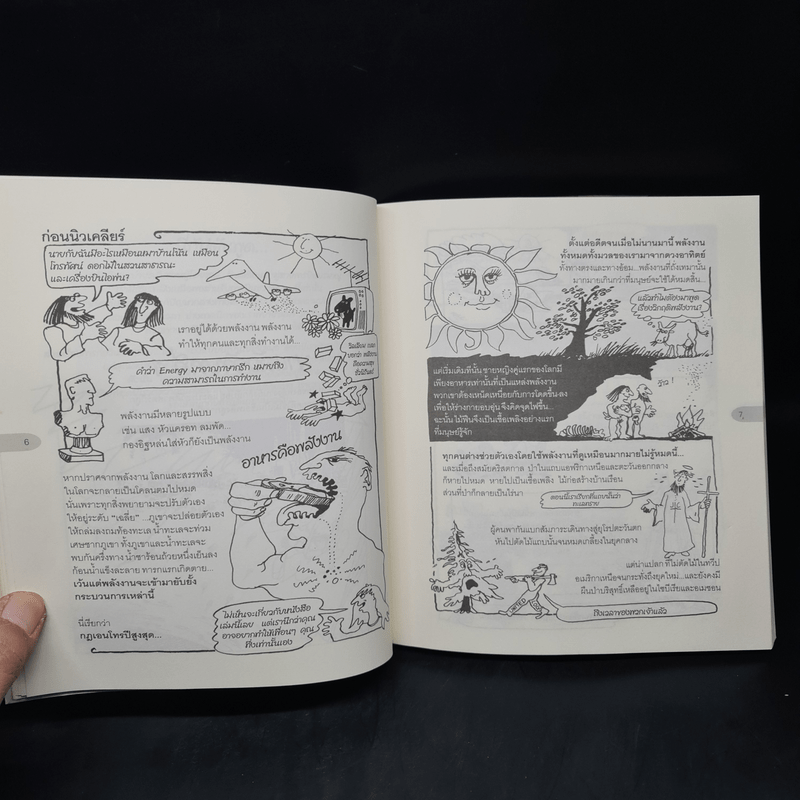 ก่อนนิวเคลียร์
นายกับฉันมีอะไรเหมือนเหมาบ้านโน้น เหมือน
โทรทัศน์ ดอกไม้ในสวนสาธารณะ
และเครื่องบินไอพ่น?
เราอยู่ได้ด้วยพลังงาน พลังงาน
ทำให้ทุกคนและทุกสิ่งทำงานได้...
คำว่า Energy มาจากภาษากรีก หมายถึง
ความสามารถในการทำงาน
พลังงานมีหลายรูปแบบ
เช่น แสง หัวแครอท ลมพัด...
กองอิฐหล่นใส่หัวก็ยังเป็นพลังงาน
อาหารคือพลังงาน
หากปราศจากพลังงาน โลกและสรรพสิ่ง
ในโลกจะกลายเป็นโคลนตมไปหมด
นั่นเพราะทุกสิ่งพยายามจะปรับตัวเอง
ให้อยู่ระดับ "เฉลี่ย" ...ภูเขาจะปล่อยตัวเอง
ให้ถล่มลงถมท้องทะเล น้ำทะเลจะท่วม
เศษซากภูเขา ทั้งภูเขาและน้ำทะเลจะ
พบกันครึ่งทาง น้ำชาร้อนถ้วยหนึ่งเย็นลง
ก้อนน้ำแข็งละลาย ทารกแรกเกิดตาย...
เว้นแต่พลังงานจะเข้ามายับยั้ง
กระบวนการเหล่านี้
นี่เรียกว่า
กฎเอนโทรปีสูงสุด...
ไม่เห็นจะเกี่ยวกับหนังสือ
เล่มนี้เลย แต่เรานึกว่าคุณ
อาจอยากทำให้เพื่อนๆ คุณ
ทึ่งเท่านั้นเอง
6
ตั้งแต่อดีตจนเมื่อไม่นานมานี้ พลังงาน
ทั้งหมดทั้งมวลของเรามาจากดวงอาทิตย์
ทั้งทางตรงและทางอ้อม...พลังงานที่ถั่งเทมานั้น
มากมายเกินกว่าที่มนุษย์จะใช้ได้หมดสิ้น...
แล้วทำไมต้องมาพูด
เรื่องวิกฤติพลังงาน?
แต่เริ่มเดิมทีนั้น ชายหญิงคู่แรกของโลกมี
เพียงอาหารเท่านั้นที่เป็นแหล่งพลังงาน
พวกเขาต้องเหน็ดเหนื่อยกับการโค่นขึ้น ลง
เพื่อให้ร่างกายอบอุ่น จึงคิดจุดไฟขึ้น...
ฉะนั้น ไม้ฟืนจึงเป็นเชื้อเพลิงอย่างแรก
ที่มนุษย์รู้จัก
ว้าว!
7
ทุกคนต่างช่วยตัวเองโดยใช้พลังงานที่ดูเหมือนมากมายไม่รู้หมดนี้...
และเมื่อถึงสมัยคริสตกาล ป่าในแถบแอฟริกาเหนือและตะวันออกกลาง
ก็หายไปหมด หายไปเป็นเชื้อเพลิง ไม้ก่อสร้างบ้านเรือน
ส่วนที่ป่าก็กลายเป็นไร่นา
ตอนนี้เราเรียกที่แถบนั้นว่า
ทะเลทราย
ผู้คนพากันแบกสัมภาระเดินทางสู่ยุโรปตะวันตก
หันไปตัดไม้แถบนั้นจนหมดเกลี้ยงในยุคกลาง
แต่น่าแปลก ที่ไม่ตัดไม้ในทวีป
อเมริกาเหนือจนกระทั่งถึงยุคใหม่... และยังคงมี
ผืนป่าบริสุทธิ์เหลืออยู่ในไซบีเรียและอเมซอน
ถึงเวลาของพวกเจ้าแล้ว